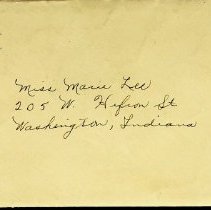 Miss Marie Lee
205 W. Hefron St
Washington, Indiana